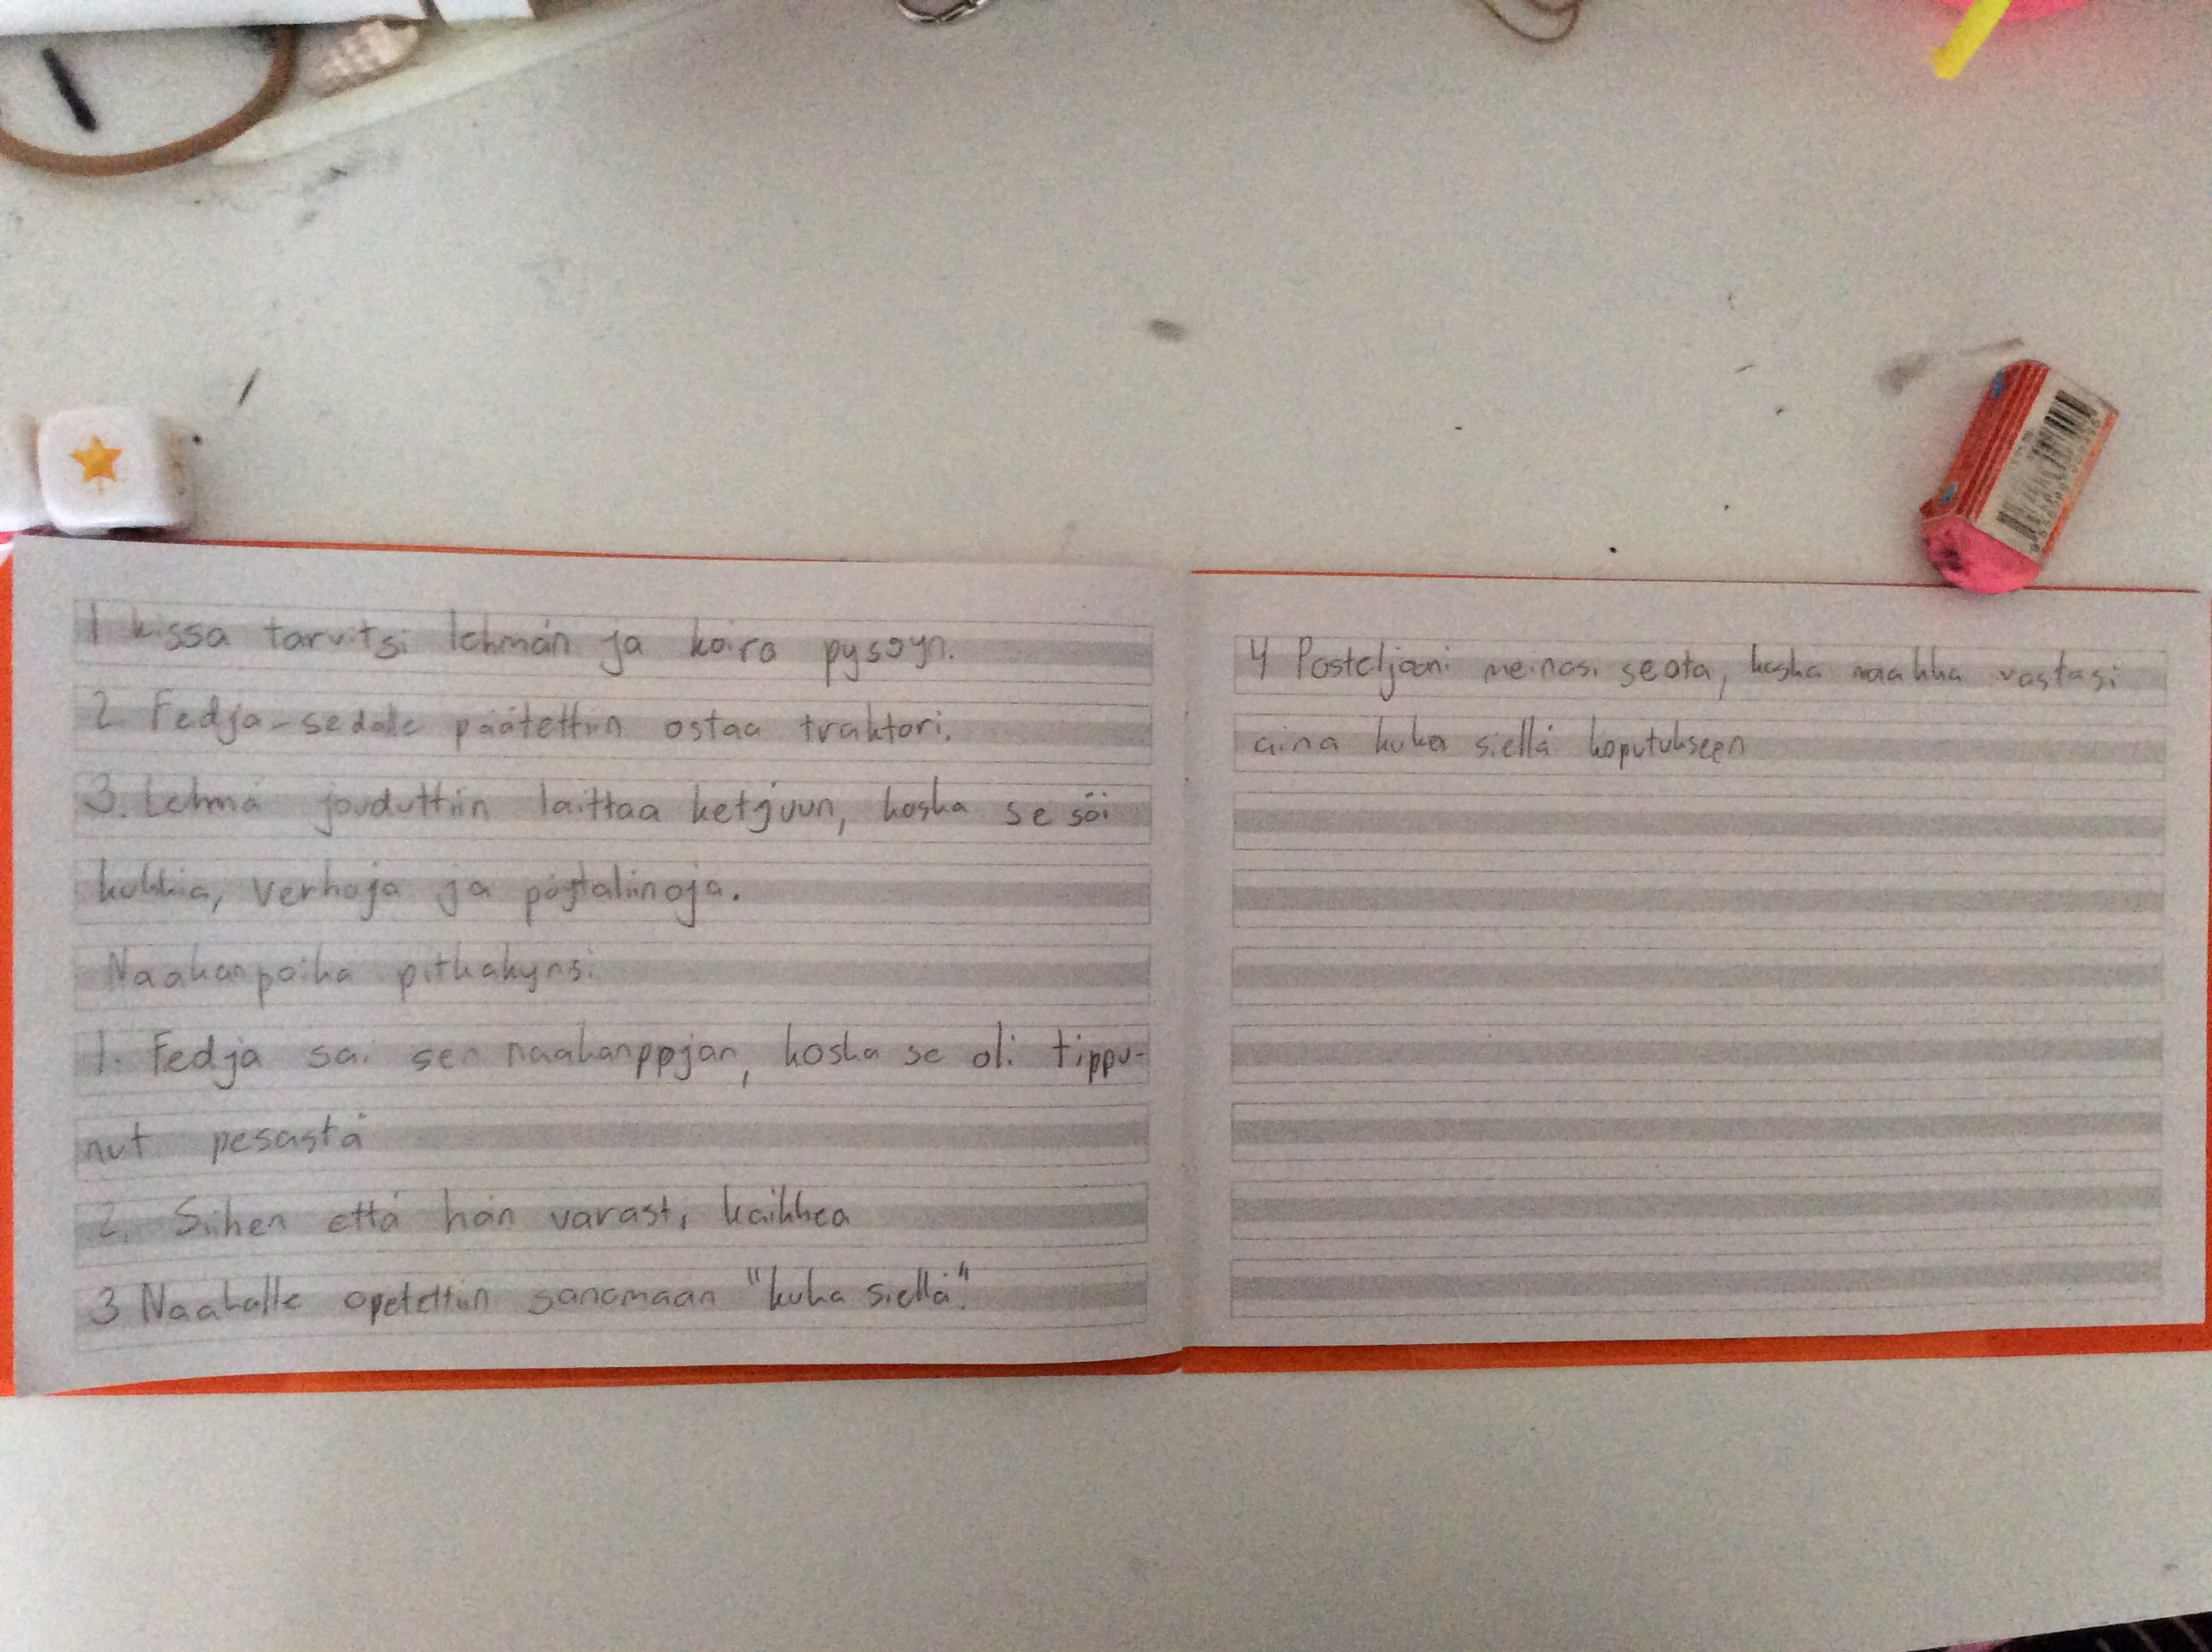 1 kissa tarvitsi lehmän ja koira pyssyn.
2 Fedja-sedälle päätettiin ostaa traktori.
3. Lehmä jouduttiin laittaa ketjuun, koska se söi
kukkia, verhoja ja pöytäliinoja.
Naakanpoika pitkäkynsi
1. Fedja sai sen naakanppjan, koska se oli tippu-
nut pesästä
2. Siihen että hän varasti kaikkea
3 Naakalle opetettiin sanomaan "kuka siellä".
4 Posteljooni meinasi seota, koska naakka vastasi
aina kuka siellä koputukseen